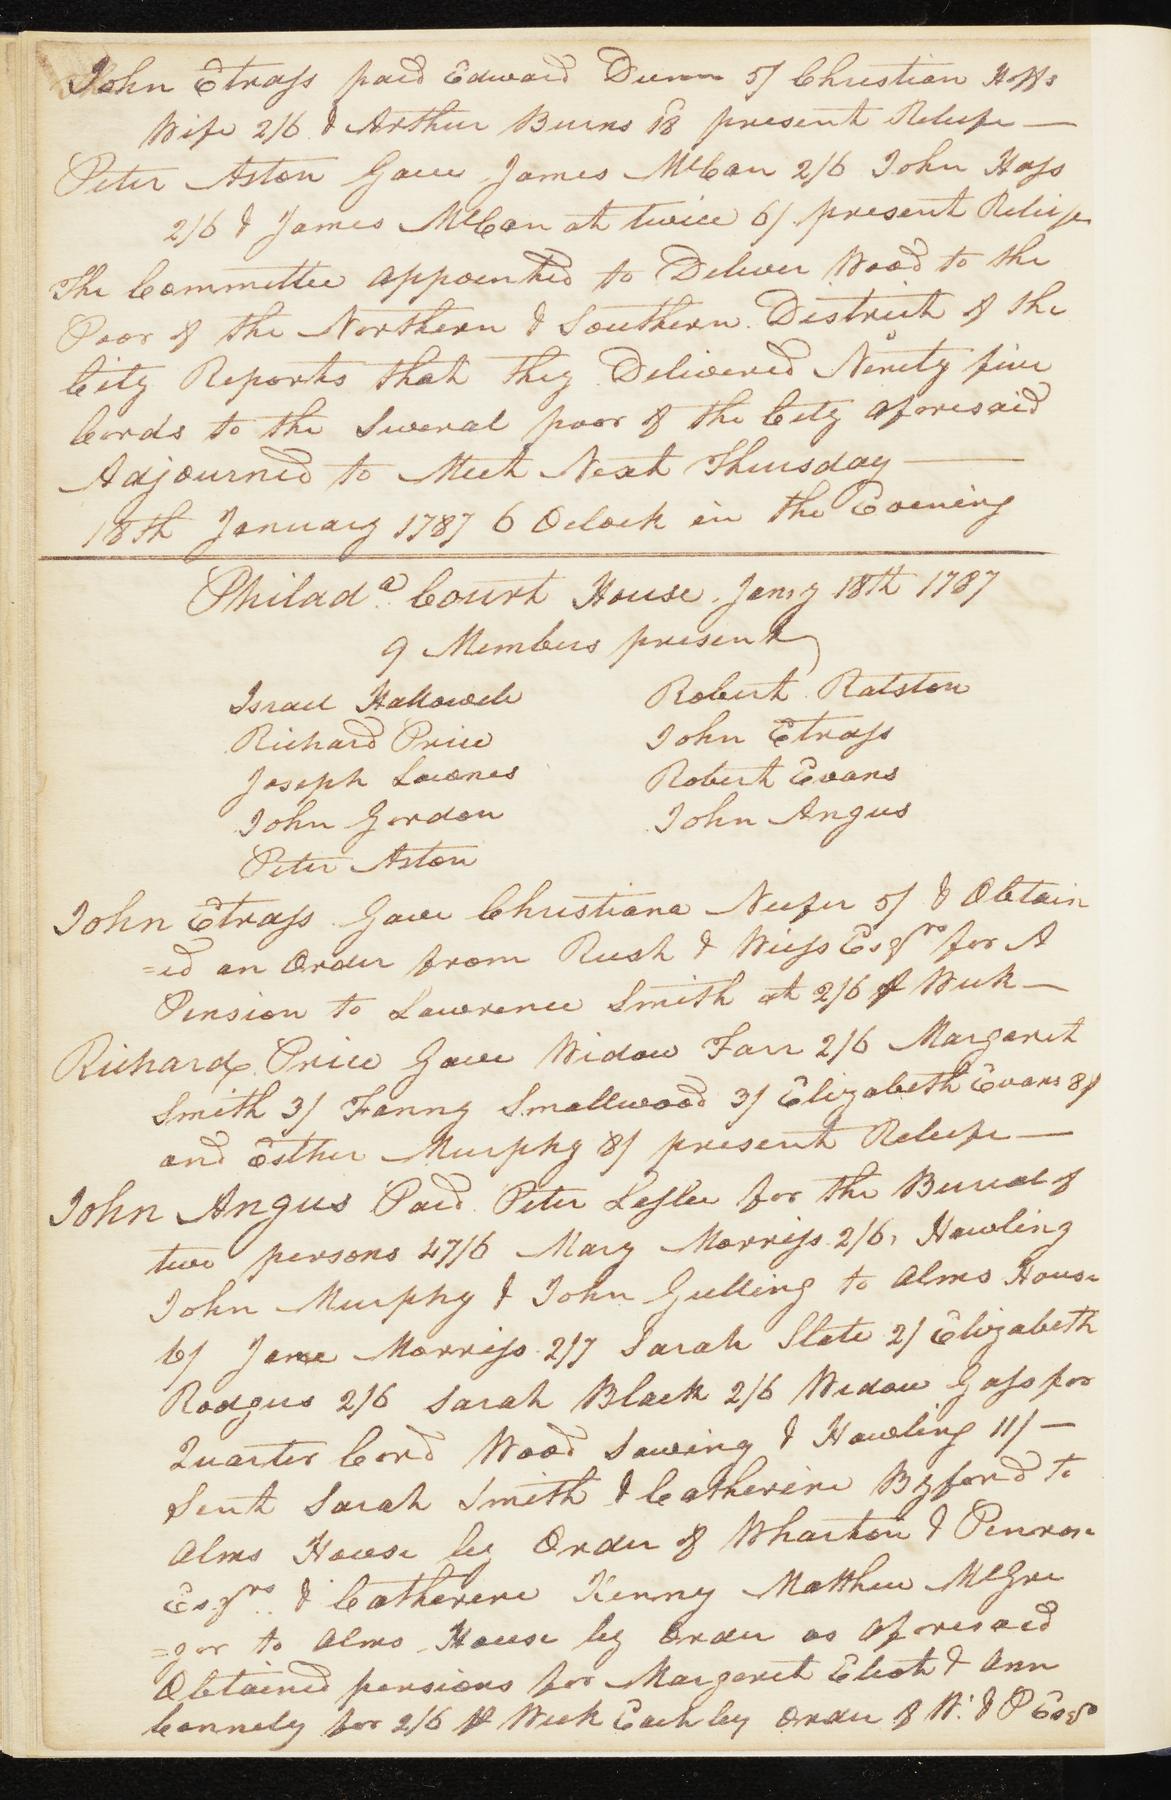 John Etrass paid Edward Dunn 5/ Christian Hoffs
Wife 2/6 & Arthur Burns present Releife —
Peter Aston Gave James McCan 2/6 John Hass
2/6 & James McCan at twice 6/ present Releife
The Committee appointed to Deliver Wood to the
Poor of the Northern & Southern District of the
City Reports that they Delivered Ninety five
Cords to the Several poor of the City aforesaid
Adjourned to Meet Next Thursday —
18th January 1787 6 Oclock in the Evening
Philada. Court House Jany 18th 1787
9 Members present
Israel Hallowell
Richard Price
Joseph Lownes
John Gordon
Peter Aston
Robert Ralston
John Etrass
Robert Evans
John Angus
John Etrass Gave Christiana Neefer 5/ & Obtain
=ed an Order from Rush & Wiess Esqrs for A
Pension to Lawrence Smith at 2/6 ⅌ Week —
Richard Price Gave Widow Farr 2/6 Margaret
Smith 3/ Fanny Smallwood 3/ Elizabeth Evans 8/
and Esther Murphy 8/ present Releife —
John Angus Paid Peter Lesler for the Bureal of
two persons 47/6 Mary Morriss 2/6, Hawling
John Murphy & John Gulling to Alms House
6/ Jane Morriss 2/7 Sarah Slate 2/ Elizabeth
Rodgers 2/6 Sarah Black 2/6 Widow Gass for
Quarter Cord Wood Sawing & Hawling 11/ —
Sent Sarah Smith & Catherine Byford to
Alms House by Order of Wharton & Penrose
Esqrs. & Catherine Kenny Matthew McGre
=gor to Alms House by order as aforesaid
Obtained pensions for Margaret Eliot & Ann
Connely for 2/6 ⅌ Week Each by order of W. & P Esqrs